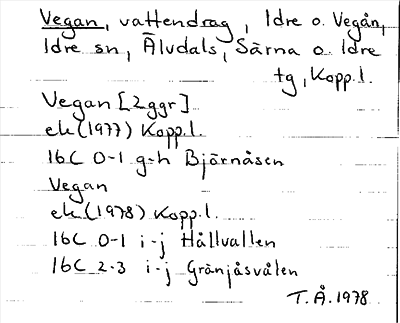 Vegan, vattendrag, Idre o. Vegån,
Idre sn, Älvdals, Särna o. Idre
tg, Kopp.l.
Vegan [2ggr]
ek (1977) Kopp.l.
16C 0-1 g-h Björnåsen
Vegan
ek (1978) Kopp.l.
16C 0-1 i-j Hållvallen
16C 2-3 i-j Gränjåsvålen
T.Å. 1978